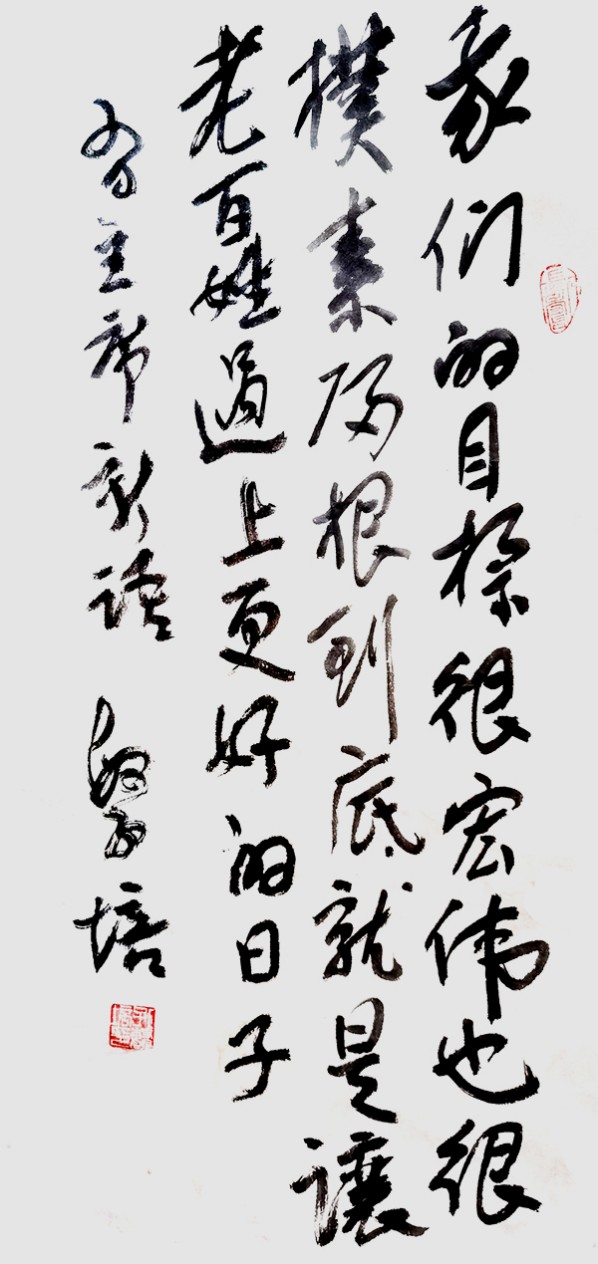 我们的目標很宏伟也很
樸素归根到底就是讓
老百姓過上更好的日子
習主席新語 培